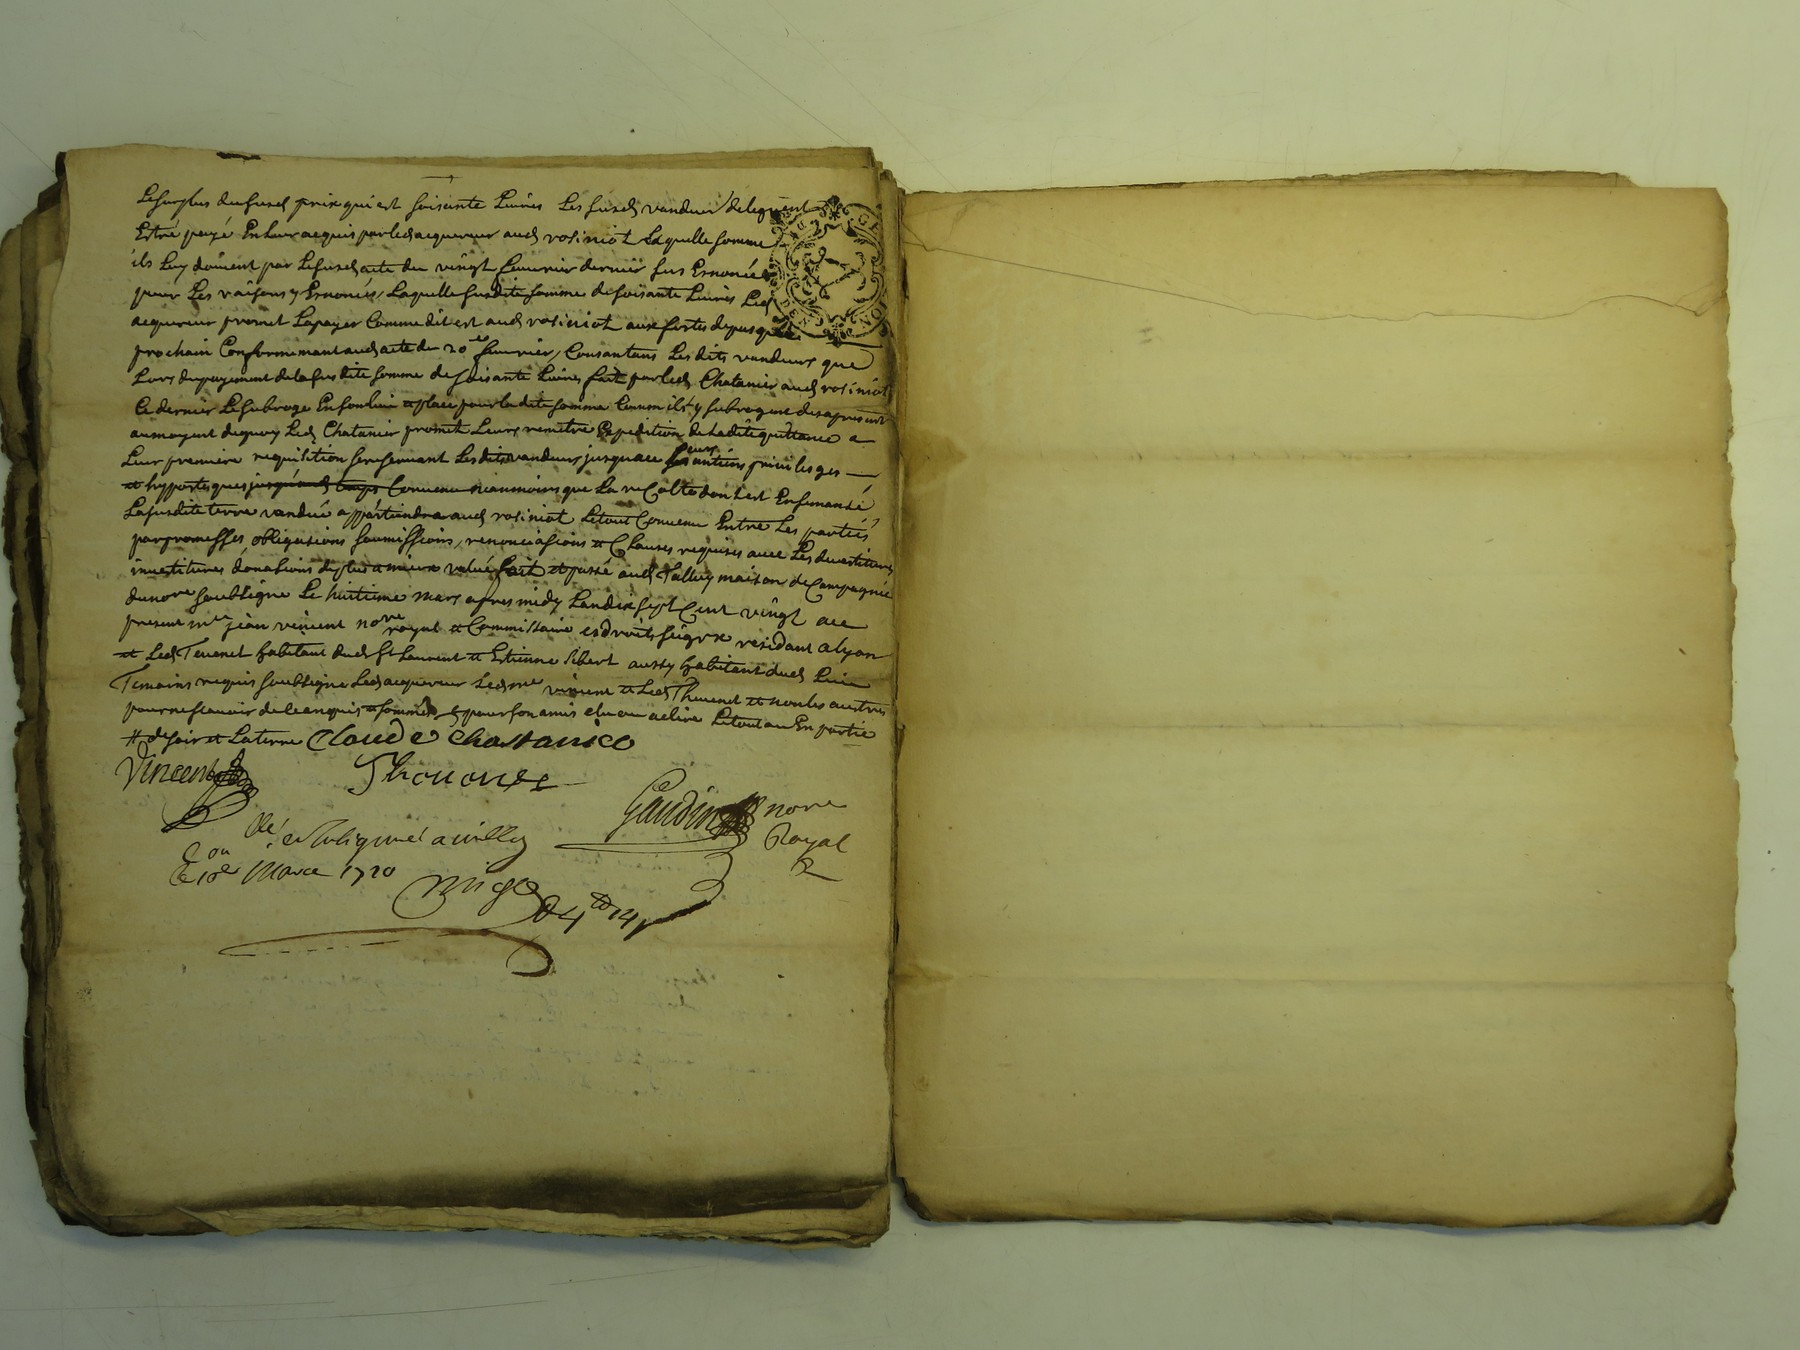 Le surplus du susd prix qui est soisante Livres Les susd vandeurs deleguent
Estre payé En leur acquis par led acquereur aud rosiniot Laquelle somme
ils Luy doivent par Le susd acte du vingt feuvrier dernier sus Enoncé
pour Les raisons y Enoncés, Laquelle susdite somme de soisante Livres Led
acquereur promet La payer Comme dit est aud rosiniot aux festes de pasques
prochain Conformemant aud acte du 20e feuvrier, Consantans Les dits vandeurs que
Lors du payement de la susdite somme de soisante Livres fait par led Chatanier aud rosiniot
Ce dernier Le subroge En son lieu et place pour la dite somme Comme ils ly subrogent des a present
au moyent de quoy Led Chatanier promet Leurs remettre Expedition de La dite quittance a
Leur premiere requisition se reservant Les dits vandeurs jusqu a ce Leurs antiers privileges
et hypporteques Convenu neanmoins que La recolte dont est Ensemansé
La susdite terre vandue appartiendra aud rosiniot Le tout Convenu Entre Les parties
par promesses obligations soumissions, renonciasions et Clauses requises avec Les devestitures
investitures donations de plus a mieux value fait et passé aud Talluy maison de Campagne
du nore soubsigne Le huitieme mars apres midy Lan dix sept Cent vingt avec
present me jean vincent nore royal et Commissaire es droits seigrx residant a lyon
et Led Tevenet habitant dud St Laurent et Estienne Sibert aussy habitant dud Lieu
Temoins requis soubsigne Led acquereur Led me vincent et Led Thevenet et non les autres
pour ne scavoir de ce enquis et sommés
Claude Chastanieo
Vincent
Thevenet
Gaudin nore
Royal
Le 10e Marce 1720